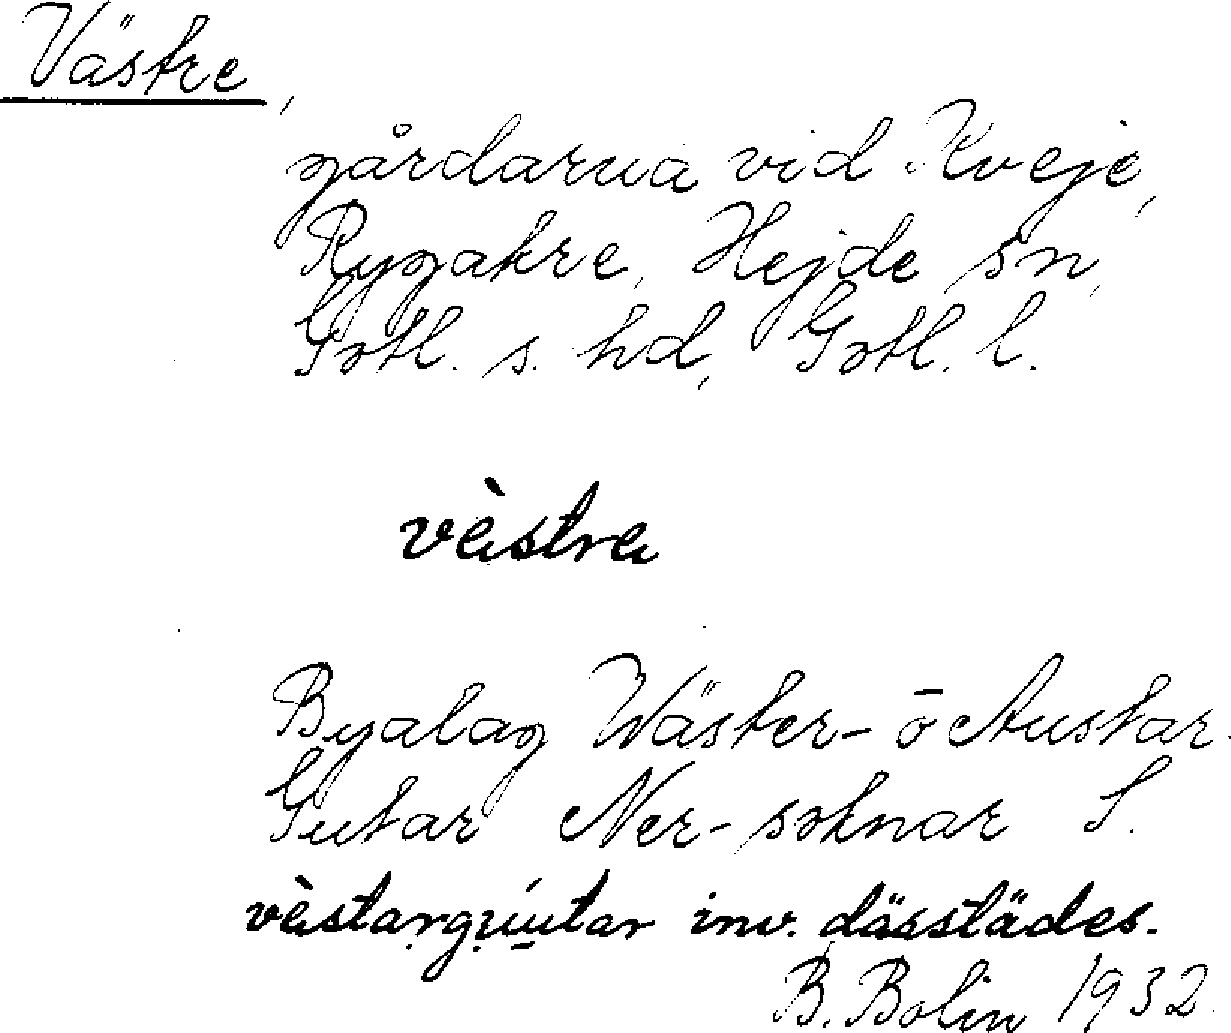 Västre,
gårdarna vid Kveje,
Rygakre, Hejde sn,
Gotl. s. hd, Gotl. l.
vèstra
Byalag Wäster- ō Austar-
Gutar Ner-soknar S.
vèstargúutar inv. dässtädes.
B. Bolin 1932.